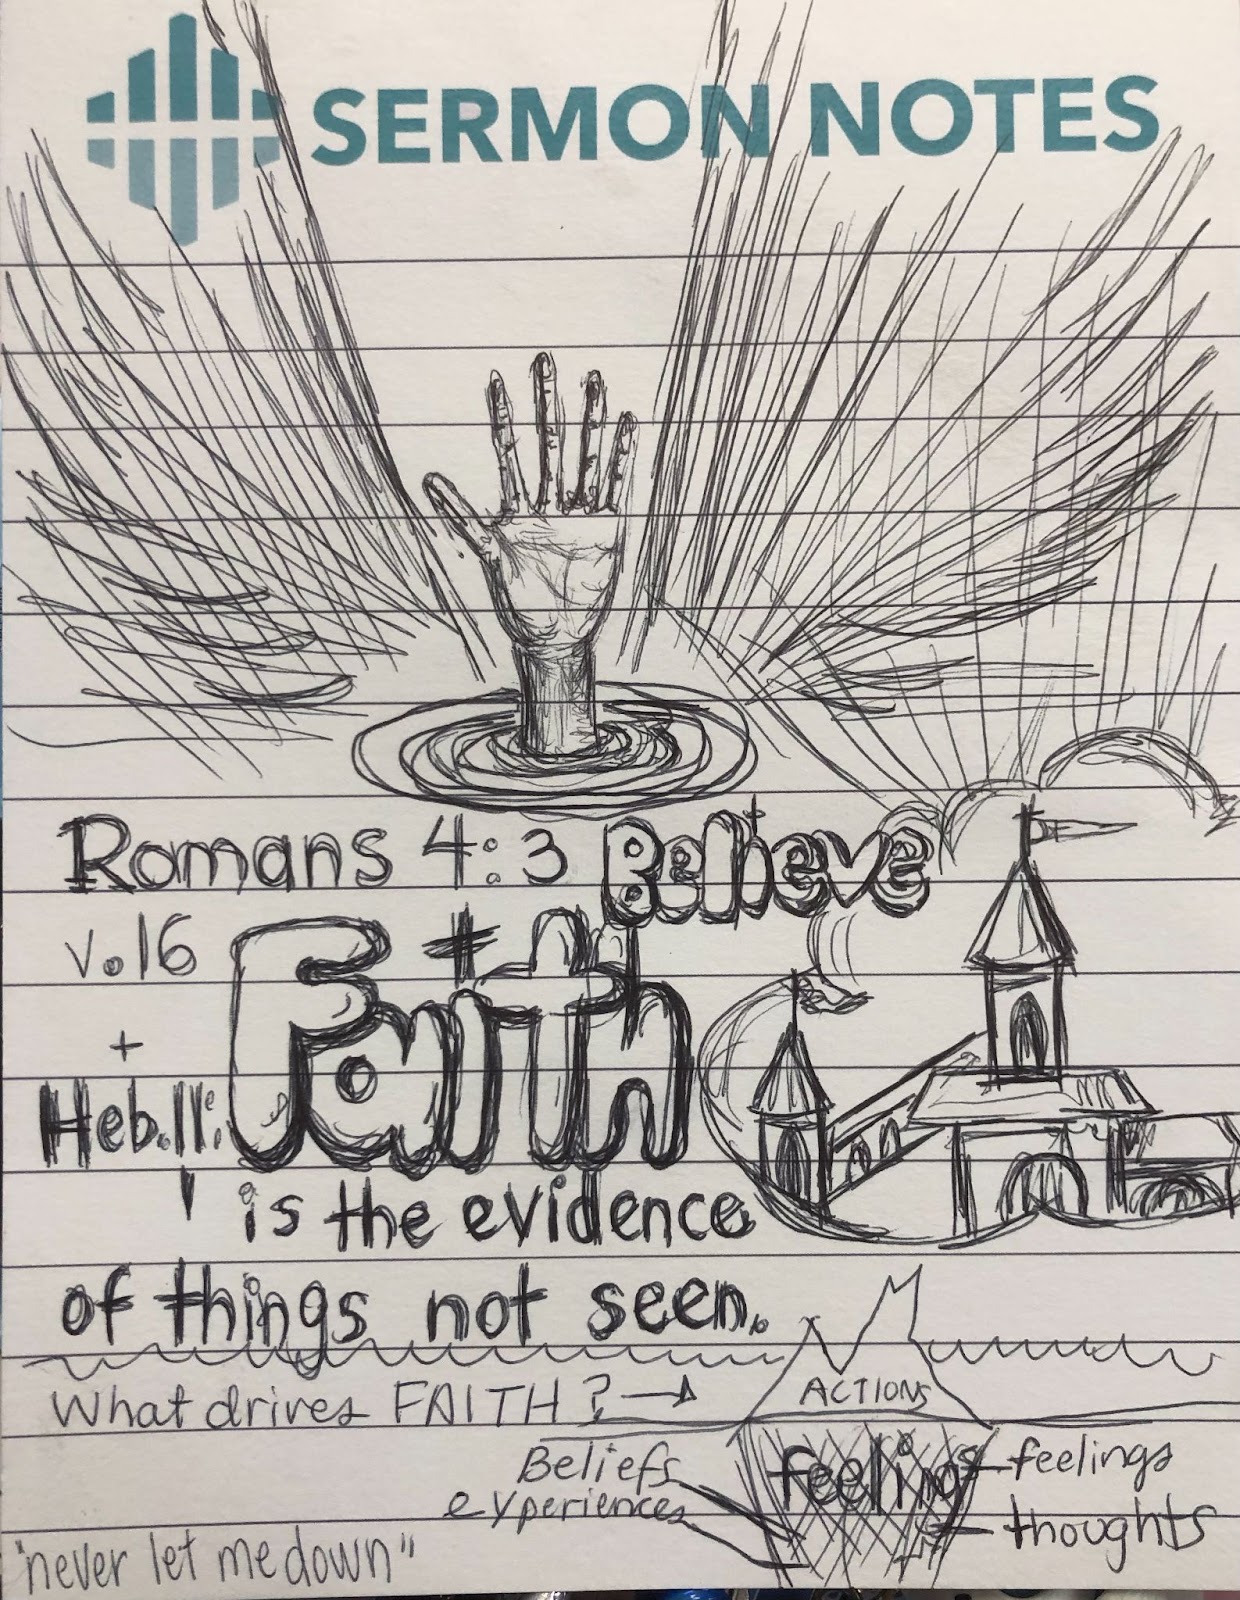 SERMON NOTES
Romans 4:3 Believe
v.16 Faith
+
Heb. 11:1
is the evidence
of things not seen.
What drives FAITH? →
ACTIONS
Beliefs feelings feelings
experiences thoughts
"never let me down"